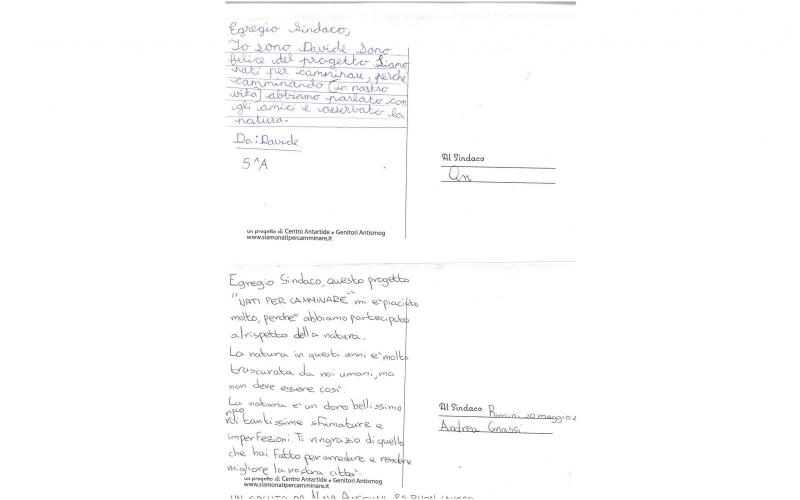 Egregio Sindaco,
Io sono Davide sono
felice del progetto Siamo
nati per camminare, perché
camminando (in nostro
vita) abbiamo parlato con
gli amici e osservato la
natura.
Da: Davide
5^A
Al Sindaco
On
un progetto di Centro Antartide e Genitori Antismog
www.siamonatipercamminare.it
Egregio Sindaco, questo progetto
"NATI PER CAMMINARE" mi è piaciuto
molto, perché abbiamo partecipato
al rispetto della natura.
La natura in questi anni è molto
trascurata da noi umani, ma
non deve essere così.
La natura è un dono bellissimo
ricco di tantissime sfumature e
imperfezioni. Ti ringrazio di quello
che hai fatto per arredare e rendere
migliore la nostra città.
Al Sindaco Rimini, 20 maggio
Andrea Gnassi
un progetto di Centro Antartide e Genitori Antismog
www.siamonatipercamminare.it
UN SALUTO DA